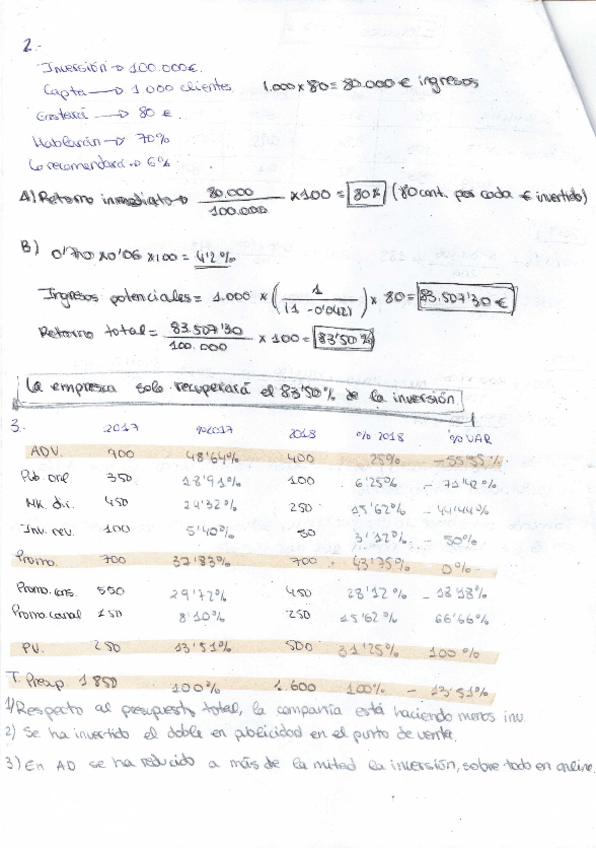 2.-
Inversión → 100.000€.
Capta → 1000 clientes 1.000 x 80 = 80.000 € ingresos
Gastará → 80 €.
Hablarán → 70%
Lo recomendará → 6%
A) Retorno inmediato → 80.000 / 100.000 x 100 = 80% (80 cent. por cada € invertido)
B) 0'70 x 0'06 x 100 = 4'2%
Ingresos potenciales = 1.000 x (1 / (1 - 0'042)) x 80 = 83.507'30 €
Retorno total = 83.507'30 / 100.000 x 100 = 83'50%
La empresa solo recuperará el 83'50% de la inversión
3. 2017 %2017 2018 % 2018 % VAR
ADV. 900 48'64% 400 25% - 55'55%.
Pub. onl 350 18'91% 100 6'25% - 71'42%
Mk. di. 450 24'32% 250 15'62% - 44'44%
Inv. rev. 100 5'40% 50 3'12% - 50%
Promo. 700 37'83% 700 43'75% 0%
Promo. cons. 550 29'72% 450 28'12% - 18'18%
Promo. canal 150 8'10% 250 15'62% 66'66%
PV. 250 13'51% 500 31'25% 100%
T. Presup 1850 100% 1.600 100% - 13'51%
1) Respecto al presupuesto total, la compañía está haciendo menos inv.
2) Se ha invertido el doble en publicidad en el punto de venta.
3) En AD se ha reducido a más de la mitad la inversión, sobre todo en online.